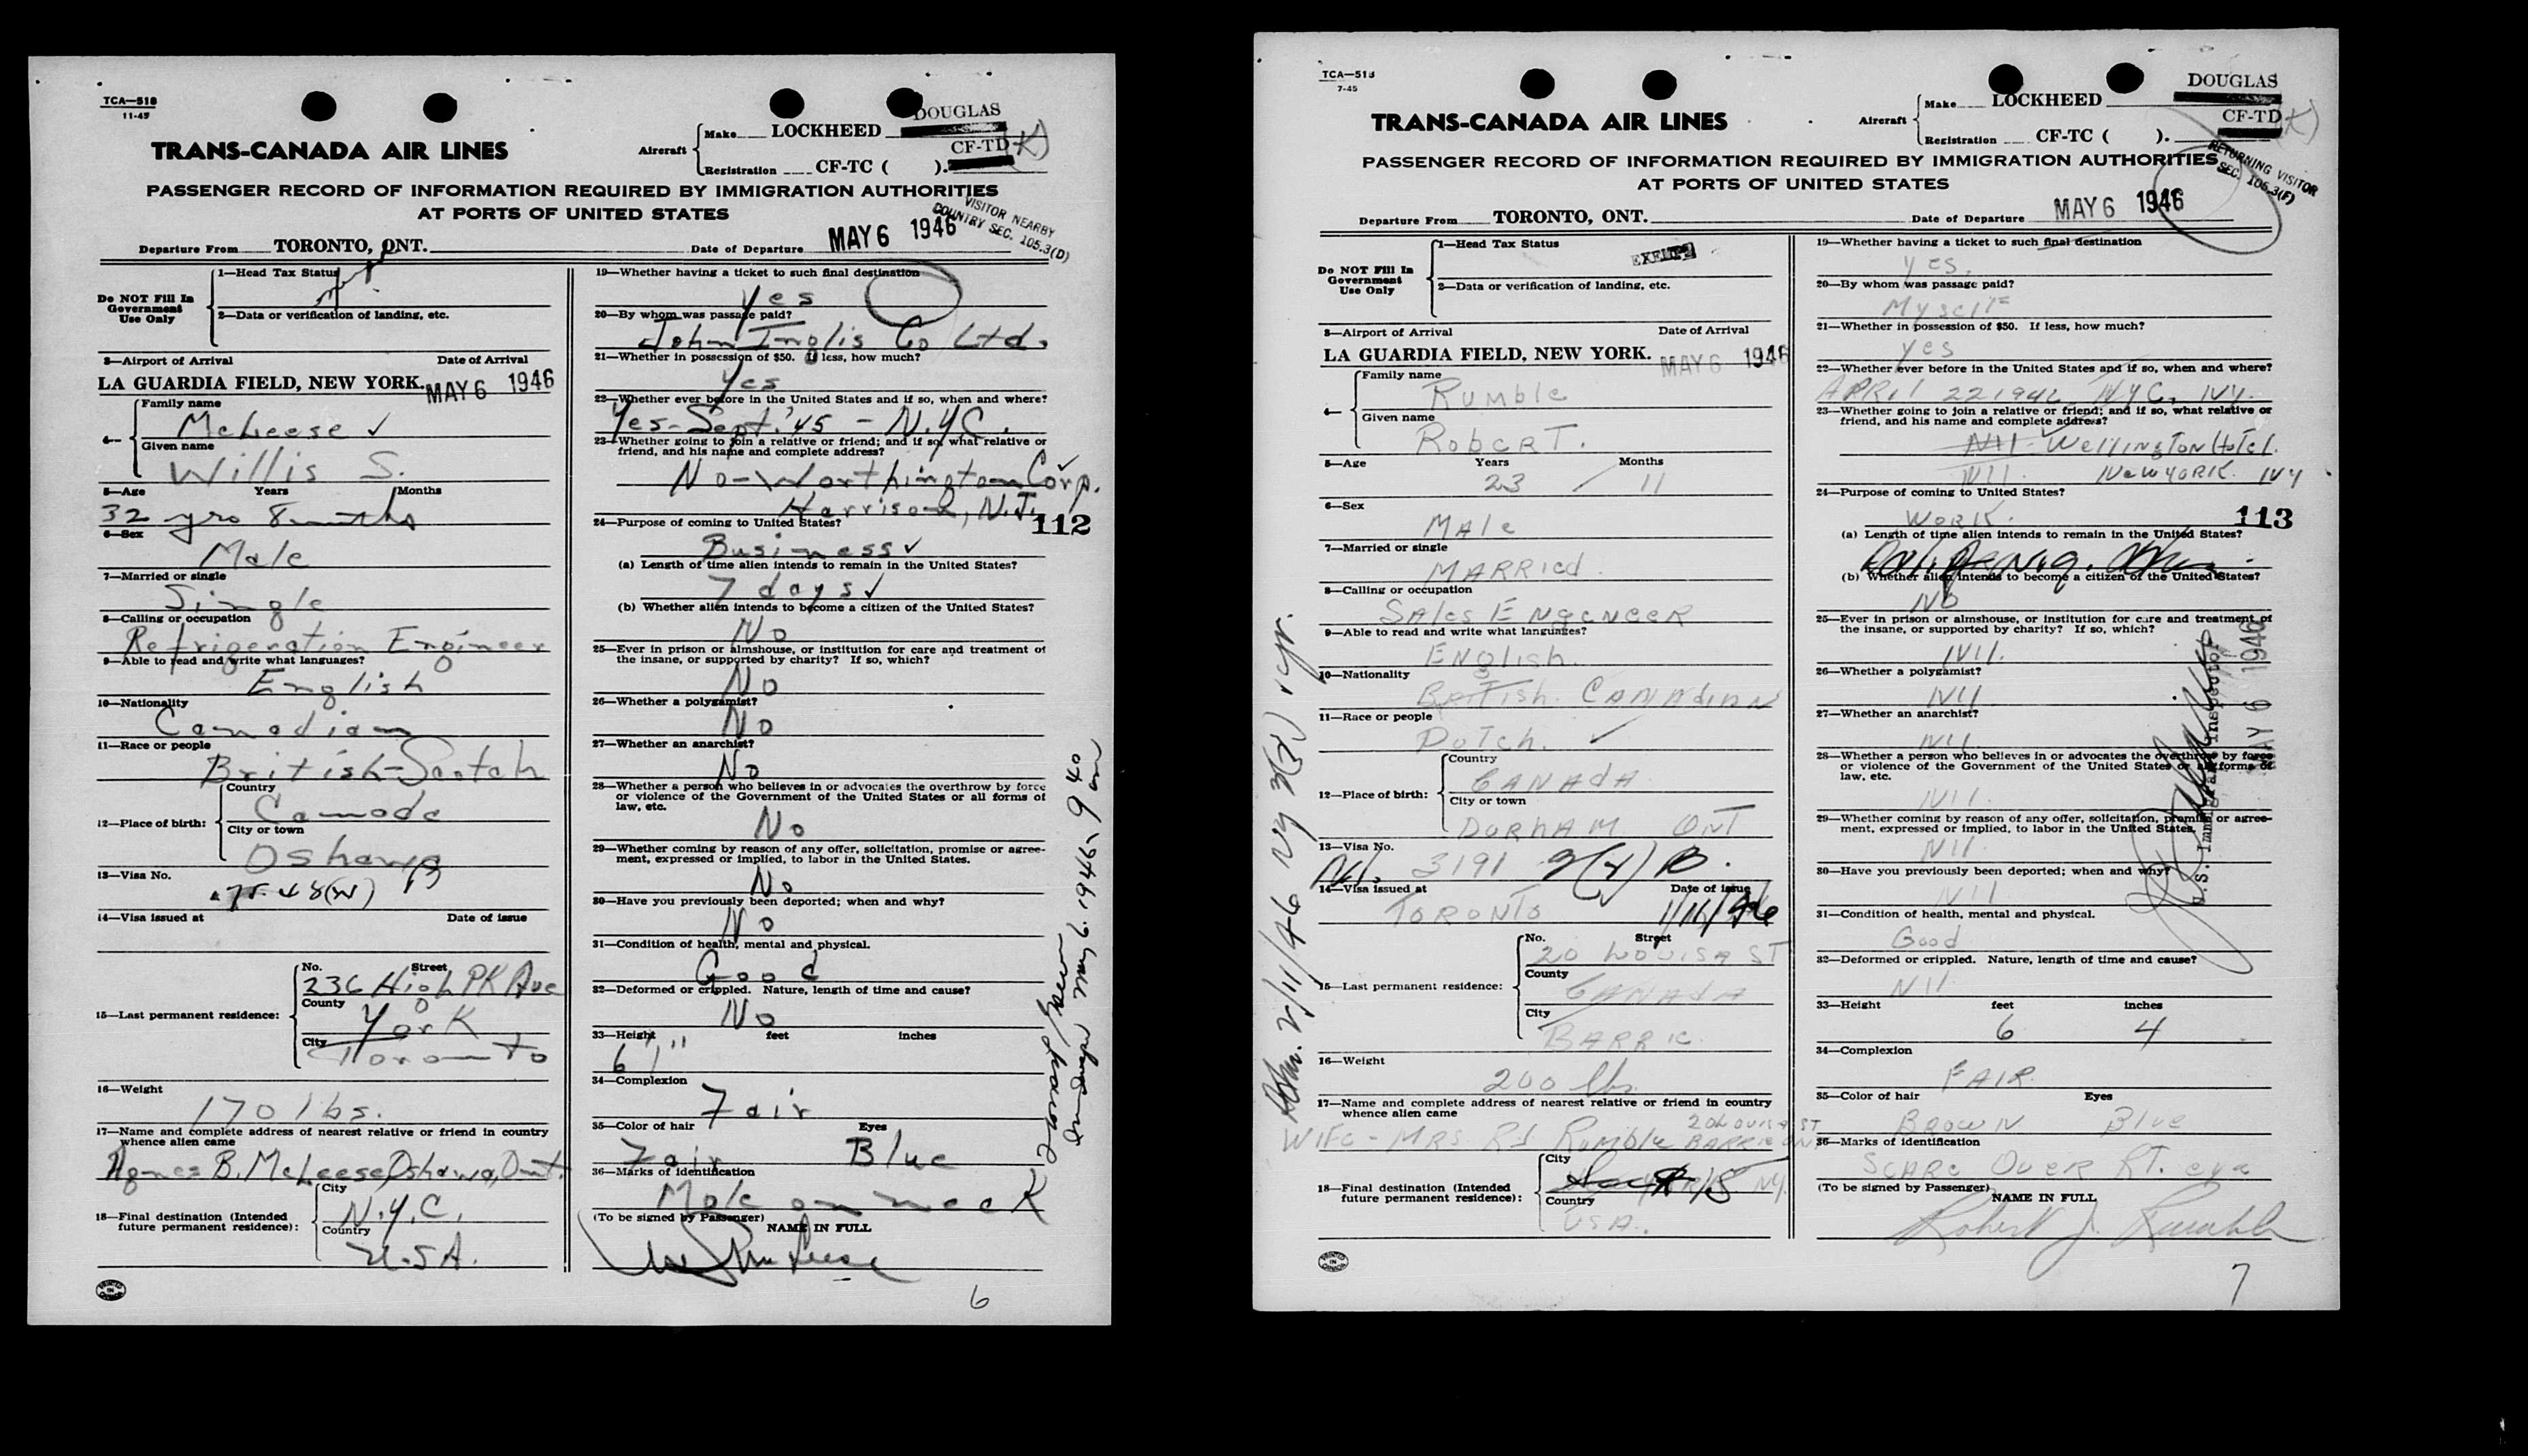 TCA—518
11-45
TRANS-CANADA AIR LINES
Aircraft
Make LOCKHEED DOUGLAS
Registration CF-TC ( ). CF-TD (K)
PASSENGER RECORD OF INFORMATION REQUIRED BY IMMIGRATION AUTHORITIES
AT PORTS OF UNITED STATES
VISITOR NEARBY
COUNTRY SEC. 105.3(D)
Departure From TORONTO, ONT. Date of Departure MAY 6 1946
Do NOT Fill In
Government
Use Only
1—Head Tax Status
2—Data or verification of landing, etc.
3—Airport of Arrival Date of Arrival
LA GUARDIA FIELD, NEW YORK. MAY 6 1946
4—
Family name
McLeese ✓
Given name
Willis S.
5—Age Years Months
32 yrs 8 mnths
6—Sex
Male
7—Married or single
Single
8—Calling or occupation
Refrigeration Engineer
9—Able to read and write what languages?
English
10—Nationality
Canadian
11—Race or people
British-Scotch
12—Place of birth:
Country
Canada
City or town
Oshawa
13—Visa No.
14—Visa issued at Date of issue
15—Last permanent residence:
No. Street
236 High PK Ave
County
York
City
Toronto
16—Weight
170 lbs.
17—Name and complete address of nearest relative or friend in country
whence alien came
Agnes B. McLeese, Oshawa, Ont.
18—Final destination (Intended
future permanent residence):
City
N.Y.C.
Country
U.S.A.
PRINTED IN CANADA
19—Whether having a ticket to such final destination
Yes
20—By whom was passage paid?
John Inglis Co Ltd.
21—Whether in possession of $50. If less, how much?
Yes
22—Whether ever before in the United States and if so, when and where?
Yes-Sept. '45 - N.Y.C.
23—Whether going to join a relative or friend; and if so, what relative or
friend, and his name and complete address?
No-Worthington Corp.
Harrison, N.J.
112
24—Purpose of coming to United States?
Business ✓
(a) Length of time alien intends to remain in the United States?
7 days ✓
(b) Whether alien intends to become a citizen of the United States?
No
25—Ever in prison or almshouse, or institution for care and treatment of
the insane, or supported by charity? If so, which?
No
26—Whether a polygamist?
No
27—Whether an anarchist?
No
28—Whether a person who believes in or advocates the overthrow by force
or violence of the Government of the United States or all forms of
law, etc.
No
29—Whether coming by reason of any offer, solicitation, promise or agree-
ment, expressed or implied, to labor in the United States.
No
30—Have you previously been deported; when and why?
No
31—Condition of health, mental and physical.
Good
32—Deformed or crippled. Nature, length of time and cause?
No
33—Height feet inches
6'1"
34—Complexion
Fair
35—Color of hair Eyes
Fair Blue
36—Marks of identification
Mole on neck
(To be signed by Passenger)
NAME IN FULL
May 6. 1946 9 40 am
6
TCA—518
7-45
TRANS-CANADA AIR LINES
Aircraft
Make LOCKHEED DOUGLAS
Registration CF-TC ( ). CF-TD (K)
PASSENGER RECORD OF INFORMATION REQUIRED BY IMMIGRATION AUTHORITIES
AT PORTS OF UNITED STATES
RETURNING VISITOR
SEC. 105.3(F)
Departure From TORONTO, ONT. Date of Departure MAY 6 1946
Do NOT Fill In
Government
Use Only
1—Head Tax Status
EXEMPT
2—Data or verification of landing, etc.
3—Airport of Arrival Date of Arrival
LA GUARDIA FIELD, NEW YORK. MAY 6 1946
4—
Family name
Rumble
Given name
Robert J.
5—Age Years Months
23 / 11
6—Sex
Male
7—Married or single
Married.
8—Calling or occupation
Sales Engeneer
9—Able to read and write what languages?
English.
10—Nationality
British. Canadian
11—Race or people
Dutch. ✓
12—Place of birth:
Country
Canada
City or town
Durham Ont
13—Visa No.
3191
14—Visa issued at Date of issue
Toronto 1/16/46
15—Last permanent residence:
No. Street
20 Louisa St
County
Canada
City
Barrie
16—Weight
200 lbs.
17—Name and complete address of nearest relative or friend in country
whence alien came
20 Louisa St
Wife - Mrs RJ Rumble Barrie Ont
18—Final destination (Intended
future permanent residence):
City
Country
USA.
PRINTED IN CANADA
19—Whether having a ticket to such final destination
Yes.
20—By whom was passage paid?
Myself
21—Whether in possession of $50. If less, how much?
Yes
22—Whether ever before in the United States and if so, when and where?
April 22 1946 NYC. NY.
23—Whether going to join a relative or friend; and if so, what relative or
friend, and his name and complete address?
Nil - Wellington Hotel.
Nil. New York. NY
113
24—Purpose of coming to United States?
Work.
(a) Length of time alien intends to remain in the United States?
(b) Whether alien intends to become a citizen of the United States?
No
25—Ever in prison or almshouse, or institution for care and treatment of
the insane, or supported by charity? If so, which?
Nil.
26—Whether a polygamist?
Nil
27—Whether an anarchist?
Nil
28—Whether a person who believes in or advocates the overthrow by force
or violence of the Government of the United States or all forms of
law, etc.
Nil.
29—Whether coming by reason of any offer, solicitation, promise or agree-
ment, expressed or implied, to labor in the United States.
Nil
30—Have you previously been deported; when and why?
Nil
31—Condition of health, mental and physical.
Good
32—Deformed or crippled. Nature, length of time and cause?
Nil
33—Height feet inches
6 4
34—Complexion
Fair.
35—Color of hair Eyes
Brown Blue
36—Marks of identification
Scare Over Rt. eye
(To be signed by Passenger)
NAME IN FULL
Robert J. Rumble
U.S. Immigrant Inspector
MAY 6 1946
7